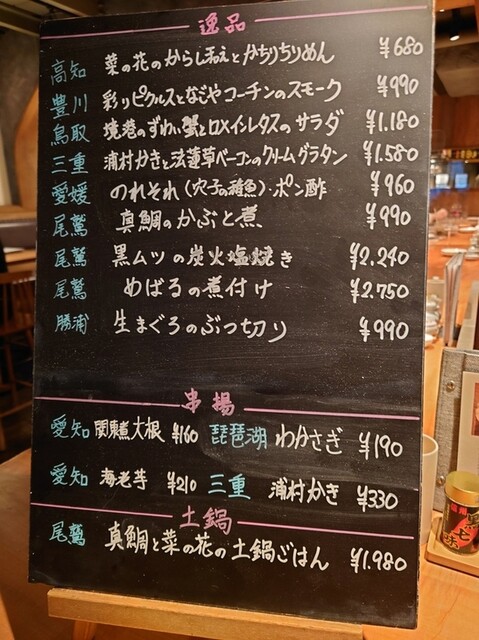 逸品
高知 菜の花のからし和えとかちりちりめん ¥680
豊川 彩りピクルスとなごやコーチンのスモーク ¥990
鳥取 境港のずわい蟹とロメインレタスのサラダ ¥1.180
三重 浦村かきと法蓮草ベーコンのクリームグラタン ¥1.580
愛媛 のれそれ(穴子の稚魚)・ポン酢 ¥960
尾鷲 真鯛のかぶと煮 ¥990
尾鷲 黒ムツの炭火塩焼き ¥2.240
尾鷲 めばるの煮付け ¥2.750
勝浦 生まぐろのぶつ切り ¥990
串揚
愛知 関東煮大根 ¥160 琵琶湖 わかさぎ ¥190
愛知 海老芋 ¥210 三重 浦村かき ¥330
土鍋
尾鷲 真鯛と菜の花の土鍋ごはん ¥1.980